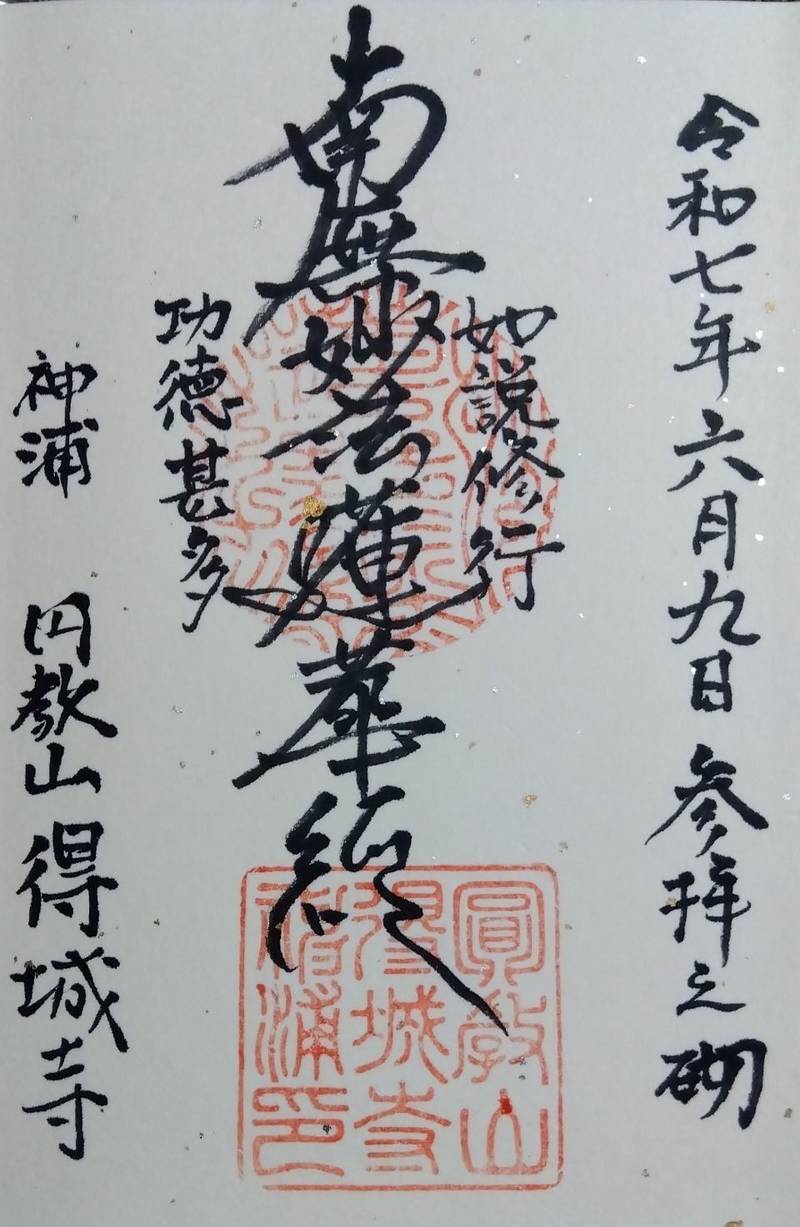 令和七年六月九日 参拝之砌
如説修行
南無妙法蓮華経
功徳甚多
神浦 円教山 得城寺
圓教山
得城寺
神浦印